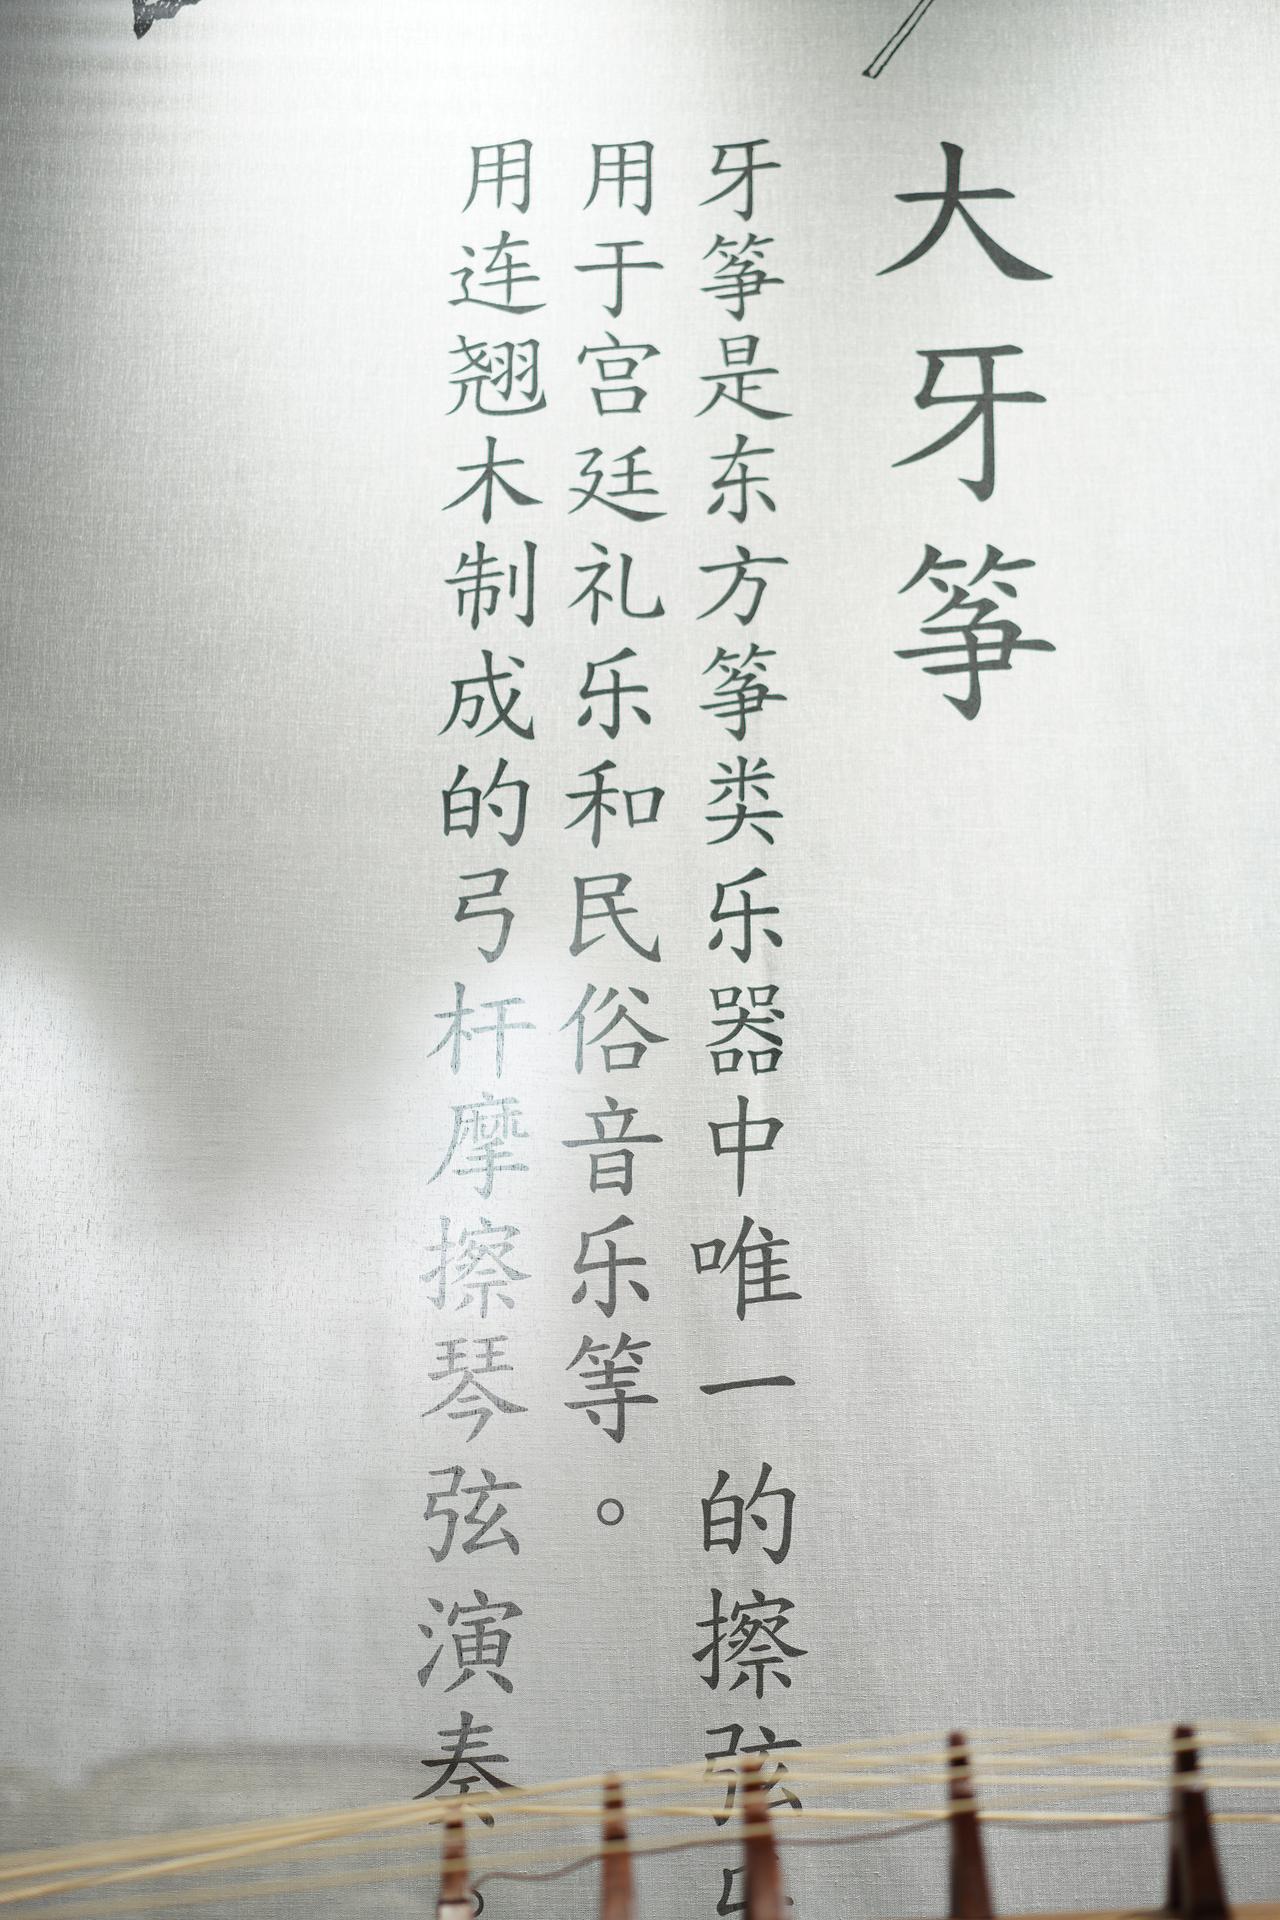 大牙筝
牙筝是东方筝类乐器中唯一的擦弦
用于宫廷礼乐和民俗音乐等。
用连翘木制成的弓杆摩擦琴弦演奏。